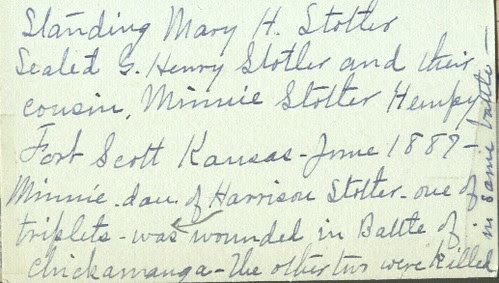 Standing Mary H. Stotler
Seated G. Henry Stotler and their
cousin, Minnie Stotler Hempy
Fort Scott Kansas - June 1887 -
Minnie - dau. of Harrison Stotler - one of
triplets - was wounded in Battle of
Chickamauga - The other two were killed
in same battle -